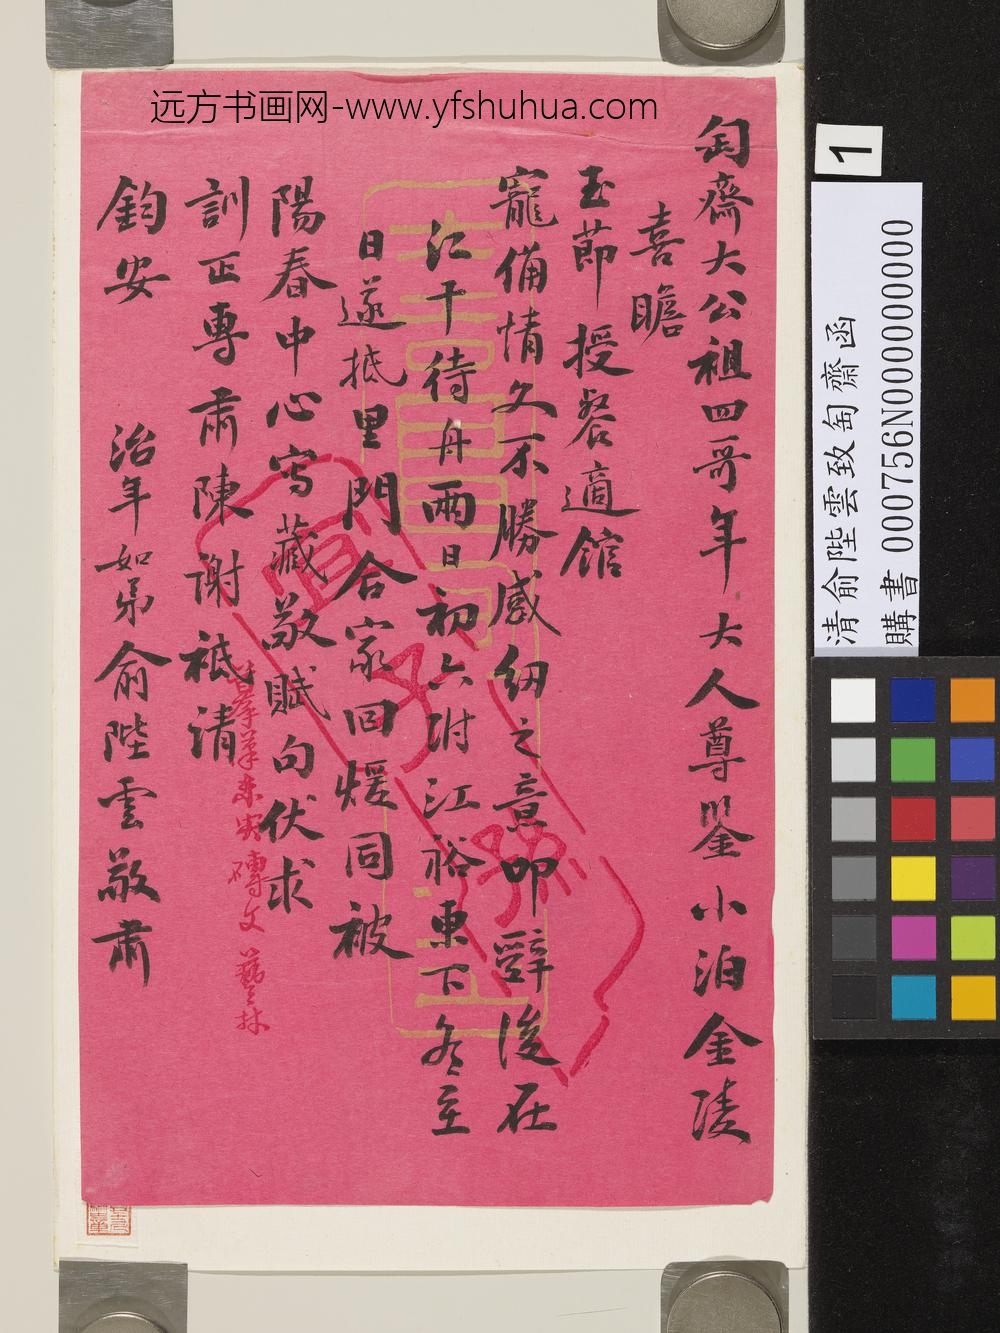 远方书画网-www.yfshuhua.com
匋齋大公祖四哥年大人尊鑒小泊金陵
喜瞻
玉節授餐適館
寵備情文不勝感紉之意叩辭後在
江干待舟兩日初六附江裕東下冬至
日遂抵里門合家回煖同被
陽春中心寫藏敬賦句伏求
訓正專肅陳謝祗請
鈞安 治年如弟俞陛雲敬肅
宜子孫
磚文
藝林
1
清俞陛雲致匋齋函
購書 000756N000000000